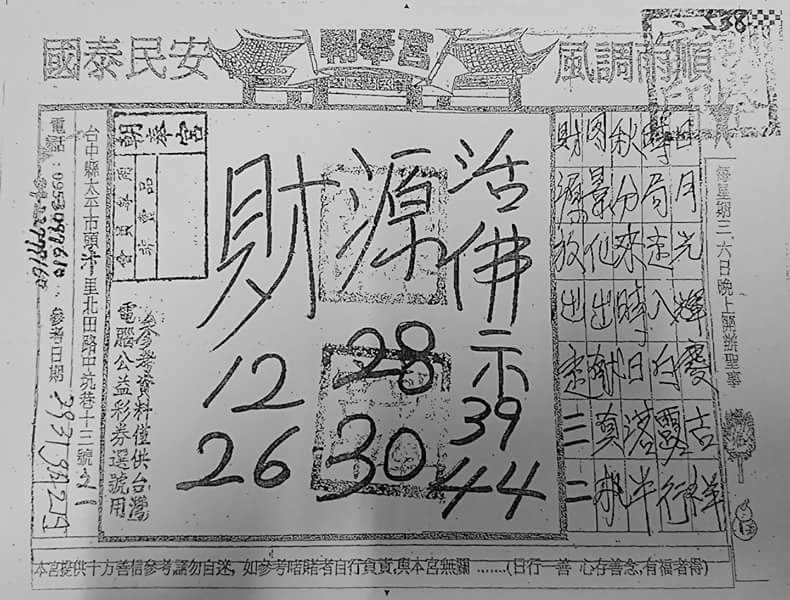 238
國泰民安
朝奉宮
風調雨順
朝奉宮
會員專用
非賣品
活佛示
財源
12 28 39
26 30 44
日月光輝慶吉祥
時局走入白靈行
秋分來時日落半
財源放出走三二
每星期三六日晚上開辦聖事
參考資料僅供台灣
電腦公益彩券選號用
台中縣太平市頭汴里北田路中坑巷十三號之一
參考日期
本宮提供十方善信參考請勿自迷, 如參考啫賭者自行負責,與本宮無關 .......(日行一善 心存善念,有福者得)